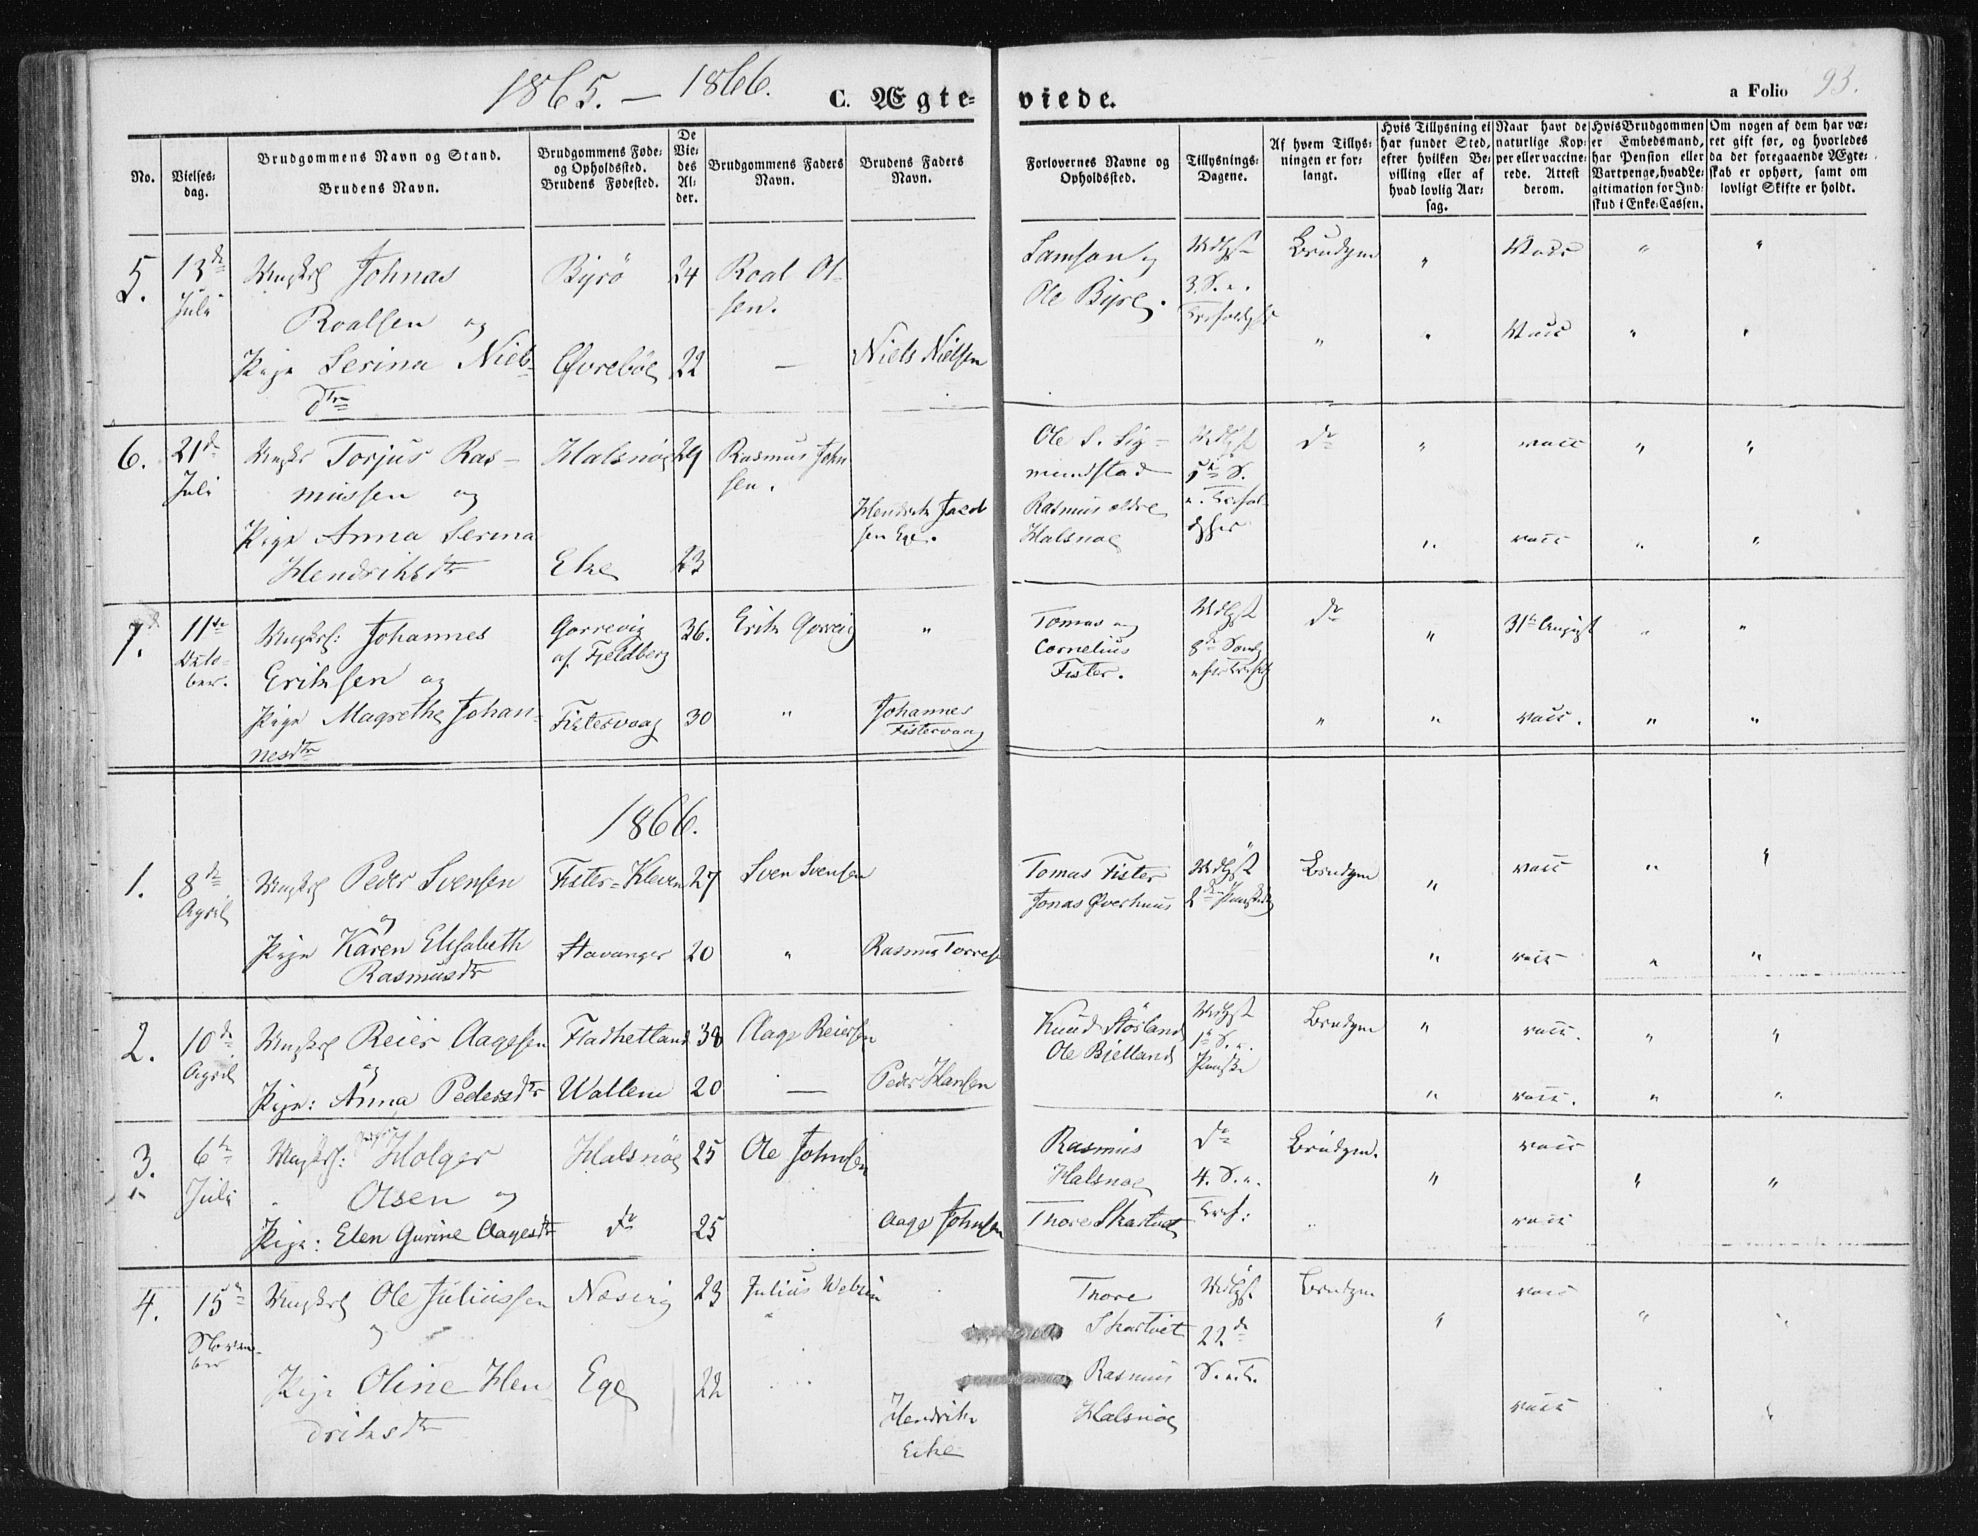 1865. — 1866.
C. Ægte-
viede.
a Folio 93.
No.
Vielses-
dag.
Brudgommens Navn og Stand.
Brudens Navn.
Brudgommens Føde-
og Opholdssted.
Brudens Fødested.
De
Vie-
des
Al-
der.
Brudgommens Faders
Navn.
Brudens Faders
Navn.
Forlovernes Navne og
Opholdssted.
Tillysnings-
Dagene.
Af hvem Tillys-
ningen er for-
langt.
Hvis Tillysning ei
har fundet Sted,
efter hvilken Be-
villing eller af
hvad lovlig Aar-
sag.
Naar havt de
naturlige Kop-
per eller vaccine-
rede. Attest
derom.
Hvis Brudgommen
er Embedsmand,
har Pension eller
Vartpenge, hvad Le-
gitimation for Ind-
skud i Enke-Cassen.
Om nogen af dem har væ-
ret gift før, og hvorledes
da det foregaaende Ægte-
skab er ophørt, samt om
lovligt Skifte er holdt.
5.
13de
Juli
Ungkrl Johnas
Roalsen og
Pige Serina Niels-
dtr
Byrö
Øvrebøe
24
22
Roal Ol-
sen.
—
Niels Nielsen
Samson og
Ole Byre.
3. S. e.
Brudgm
Vacc
Vacc
6.
21de
Juli
Ungkr Torjus Ras-
mussen og
Pige Anna Serina
Hendriksdtr
Halsnøe
Eke
29
23
Rasmus John
sen.
Hendrik Jacob
sen Ege.
Ole S. Sig-
mundstad
Rasmus ældre
Halsnøe
do
vacc
vacc
7.
11te
Octo-
ber.
Ungkrl: Johannes
Eriksen og
Pige Magrethe Johan-
nesdtr
Gorrevig
af Fjeldberg
Fistervaag
36.
30
Erik Gorreig
"
"
Johannes
Fistervaag
Tomas og
Cornelius
Fister.
8de Sondg
do
31te August
vacc.
1866.
1.
8de
April
Ungkrl Peder Svensen
og
Pige Karen Elisabeth
Rasmusdtr
Fister-Kleven
Stavanger
27
20
Sven Svensen
"
Rasmus Torres
Tomas Fister
Jonas Øverhuus
Brudgm
vacc
vacc
2.
10de
April
Ungkrl Reier Aagesen
og
Pige: Anna Pedersdtr
Fladhetland
Wallem
38
20
Aage Reiersen
—
Peder Hansen
Knud Størland
Ole Bjelland
1te S. e.
Paaske
Brudgm
vacc.
vacc.
3.
6te
Juli
Ungkrl: Holger
Olsen og
Pige: Elen Gurine Aagesdtr
Halsnøe
do
25
25
Ole Johnsen
Aage Johnsen
Rasmus
Halsnøe
Thore Skartved
do
4. S. e.
Tref:
Brudgm.
vacc
vacc
4.
15de
Novem-
ber
Ungkrl Ole Juliussen
og
Pige Oline Hen
driksdtr
Næsvig
Ege
23
22
Julius
Hendrik
Eike
Thore
Skartvet
Rasmus
Halsnøe
22de
S. e. Tr.
Brudgm
vacc
vacc